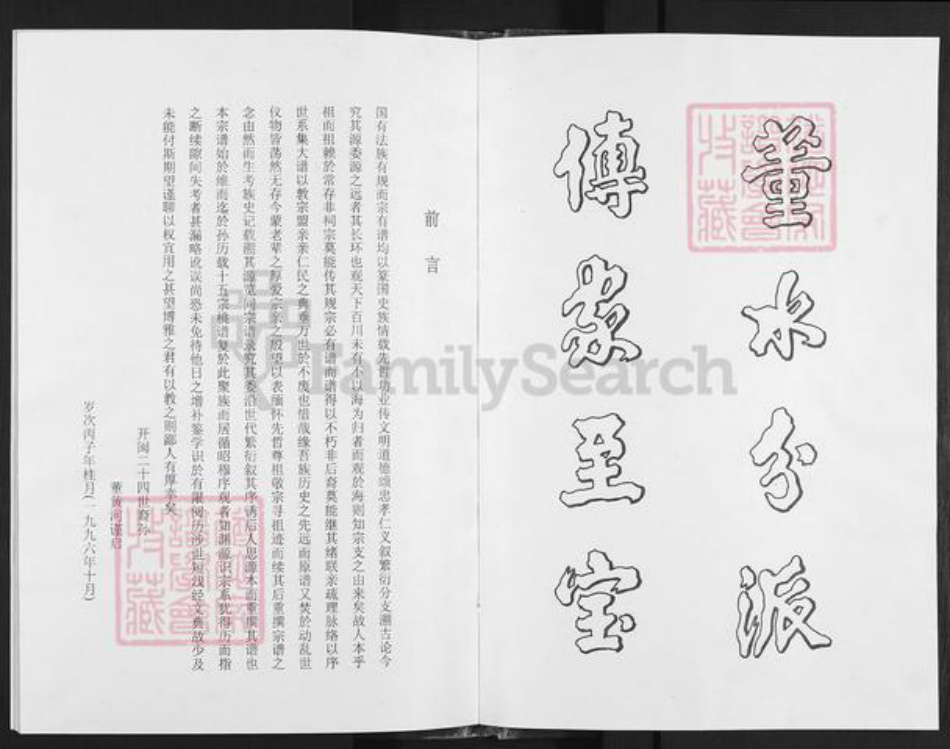 董水分派
傳家至宝
前言
国有法族有规而宗有谱均以篆国史族情载先哲功业传文明道德颂忠孝仁义叙繁衍分支溯古论今
究其源委源之远者其长环也观天下百川未有不以海为归者而观於海则知宗支之由来矣故人本乎
祖而祖赖於常存非祠宗莫能传其规宗必有谱而谱得以不朽非后裔莫能继其绪联亲疏理脉络以序
世系集大谱以教宗盟亲亲仁民之典垂万世於不废也惜哉缘吾族历史之先远而原谱又焚於动乱世
仪物皆荡然无存今蒙老辈之厚爱宗亲之殷望以表缅怀先哲尊祖敬宗寻祖迹而续其后重撰宗谱之
念由然而生考族史记载溯其源览同宗谱录究其委沿世代繁衍叙其序诱后人思源本而重撰其谱也
本宗谱始於维而迄於孙历载十五宗桃谱复於此聚族而居循昭穆序观者知渊源识宗系犹得历而指
之断续隙间失考者甚漏略讹误尚恐未免待他日之增补鉴学识於有限阅历涉世短浅经文典故少及
未能付斯期望谨聊以权宜用之甚望博雅之君有以教之则鄙人有厚幸矣
开闽二十四世裔孙
董黄河谨启
岁次丙子年桂月(一九九六年十月)
FamilySearch